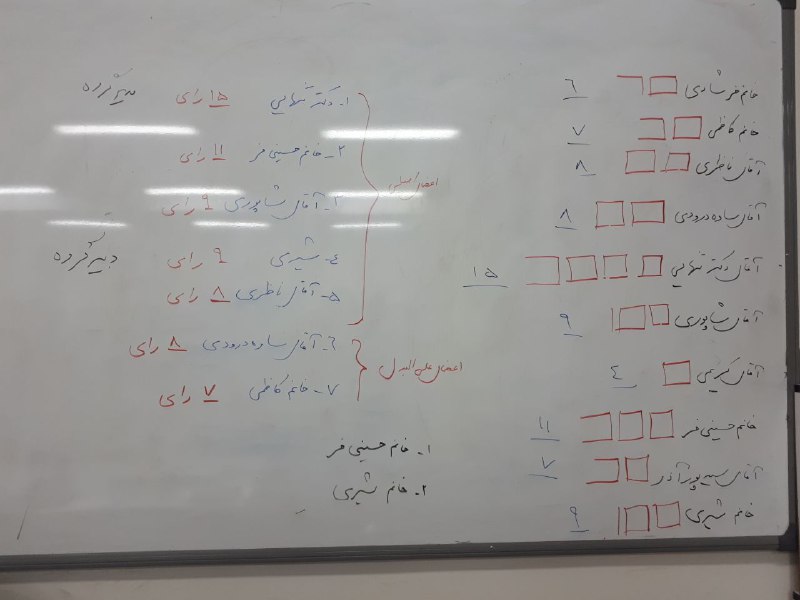 خانم فرشادی ۶
خانم کاظمی ۷
آقای ناطری ۸
آقای ساده درودی ۸
آقای دکتر تنهایی ۱۵
آقای شاپوری ۹
آقای کریمی ٤
خانم حسینی فر ۱۱
آقای سپهرآذر ۷
خانم شیری ۹
۱. دکتر تنهایی ۱۵ رای
۲- خانم حسینی فر ۱۱ رای
۳- آقای شاپوری ۹ رای
٤- شیری ۹ رای دبیر گروه
۵- آقای ناطری ۸ رای
اعضای اصلی
۶- آقای ساده درودی ۸ رای
۷- خانم کاظمی ۷ رای
اعضای علی البدل
۱. خانم حسینی فر
۲. خانم شیری